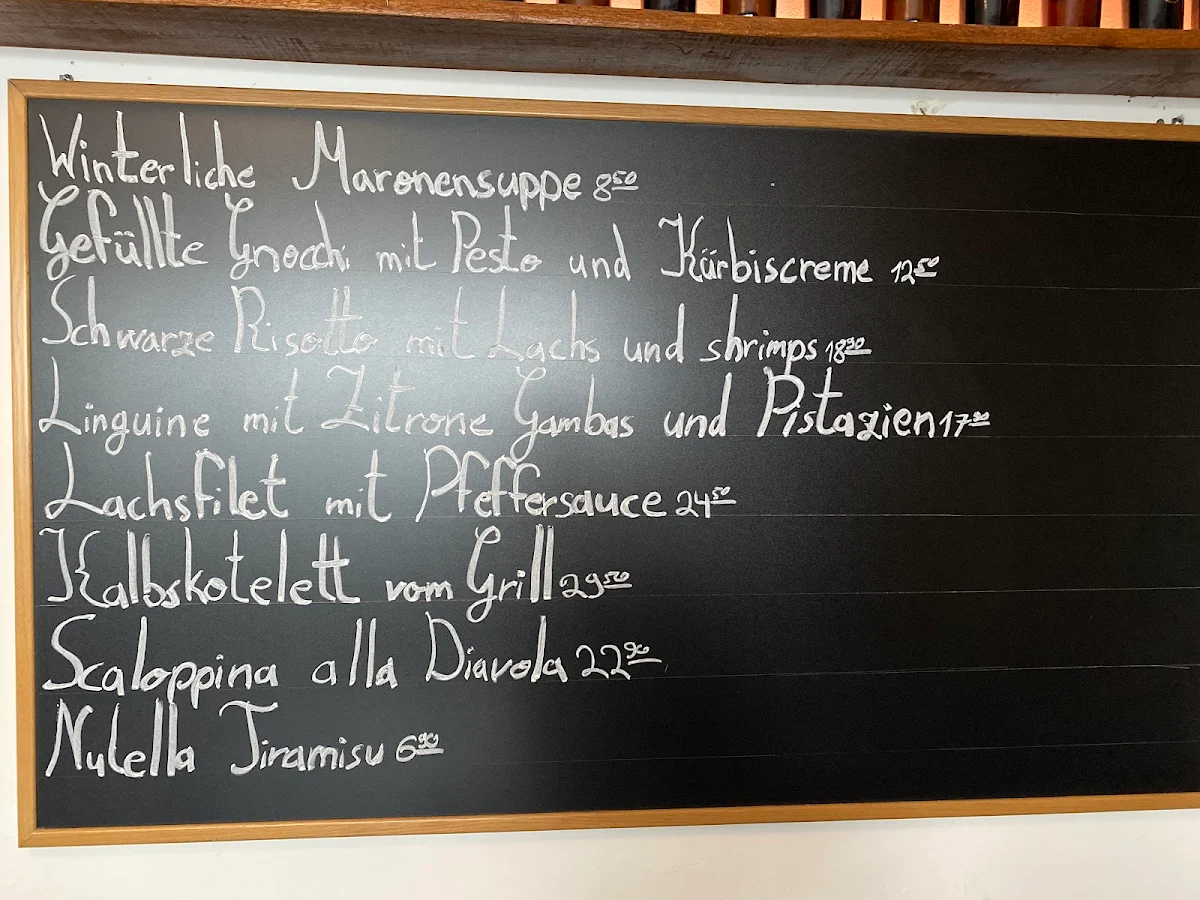 Winterliche Maronensuppe 8⁵⁰
Gefüllte Gnocchi mit Pesto und Kürbiscreme 12⁵⁰
Schwarze Risotto mit Lachs und shrimps 18⁹⁰
Linguine mit Zitrone Gambas und Pistazien 17⁹⁰
Lachsfilet mit Pfeffersauce 24⁵⁰
Kalbskotelett vom Grill 29⁵⁰
Scaloppina alla Diavola 22⁹⁰
Nutella Tiramisu 6⁹⁰